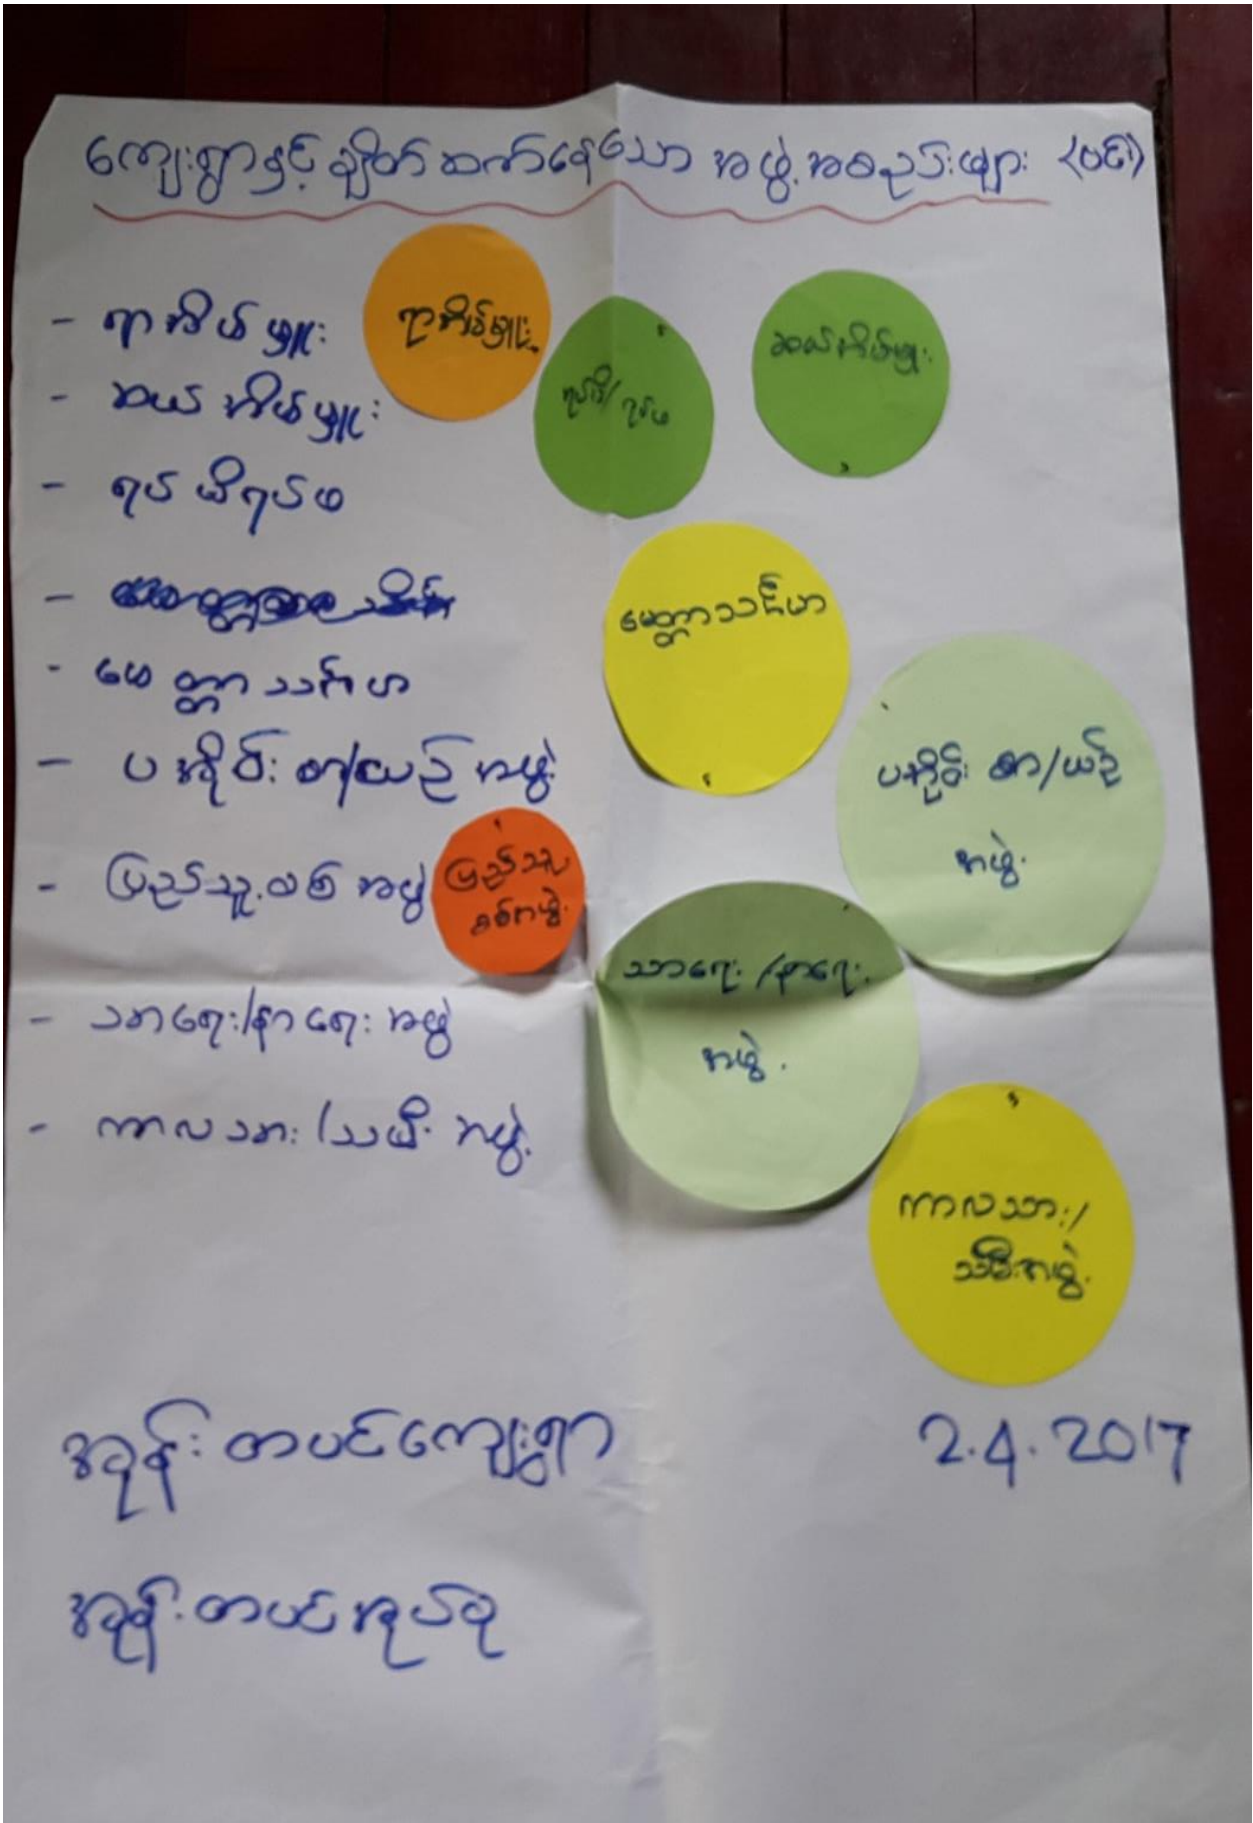 ကျေးရွာနှင့် ချိတ်ဆက်နေသော အဖွဲ့အစည်းများ
- ရာအိမ်မှူး
- ဆယ်အိမ်မှူး
- ရပ်မိရပ်ဖ
- မေတ္တာသင်္ဟာ
- ပအိုဝ်း စာ/ယဉ် အဖွဲ့
- ပြည်သူ့စစ် အဖွဲ့
- သာရေး/နာရေး အဖွဲ့
- ကာလသား/သမီး အဖွဲ့
ရာအိမ်မှူး
ရပ်မိ/ရပ်ဖ
ဆယ်အိမ်မှူး
မေတ္တာသင်္ဟာ
ပအိုဝ်း စာ/ယဉ်
အဖွဲ့
ပြည်သူ့
စစ်အဖွဲ့
သာရေး/နာရေး
အဖွဲ့
ကာလသား/
သမီးအဖွဲ့
အုန်းတပင်ကျေးရွာ
2.4.2017
အုန်းတပင်အုပ်စု